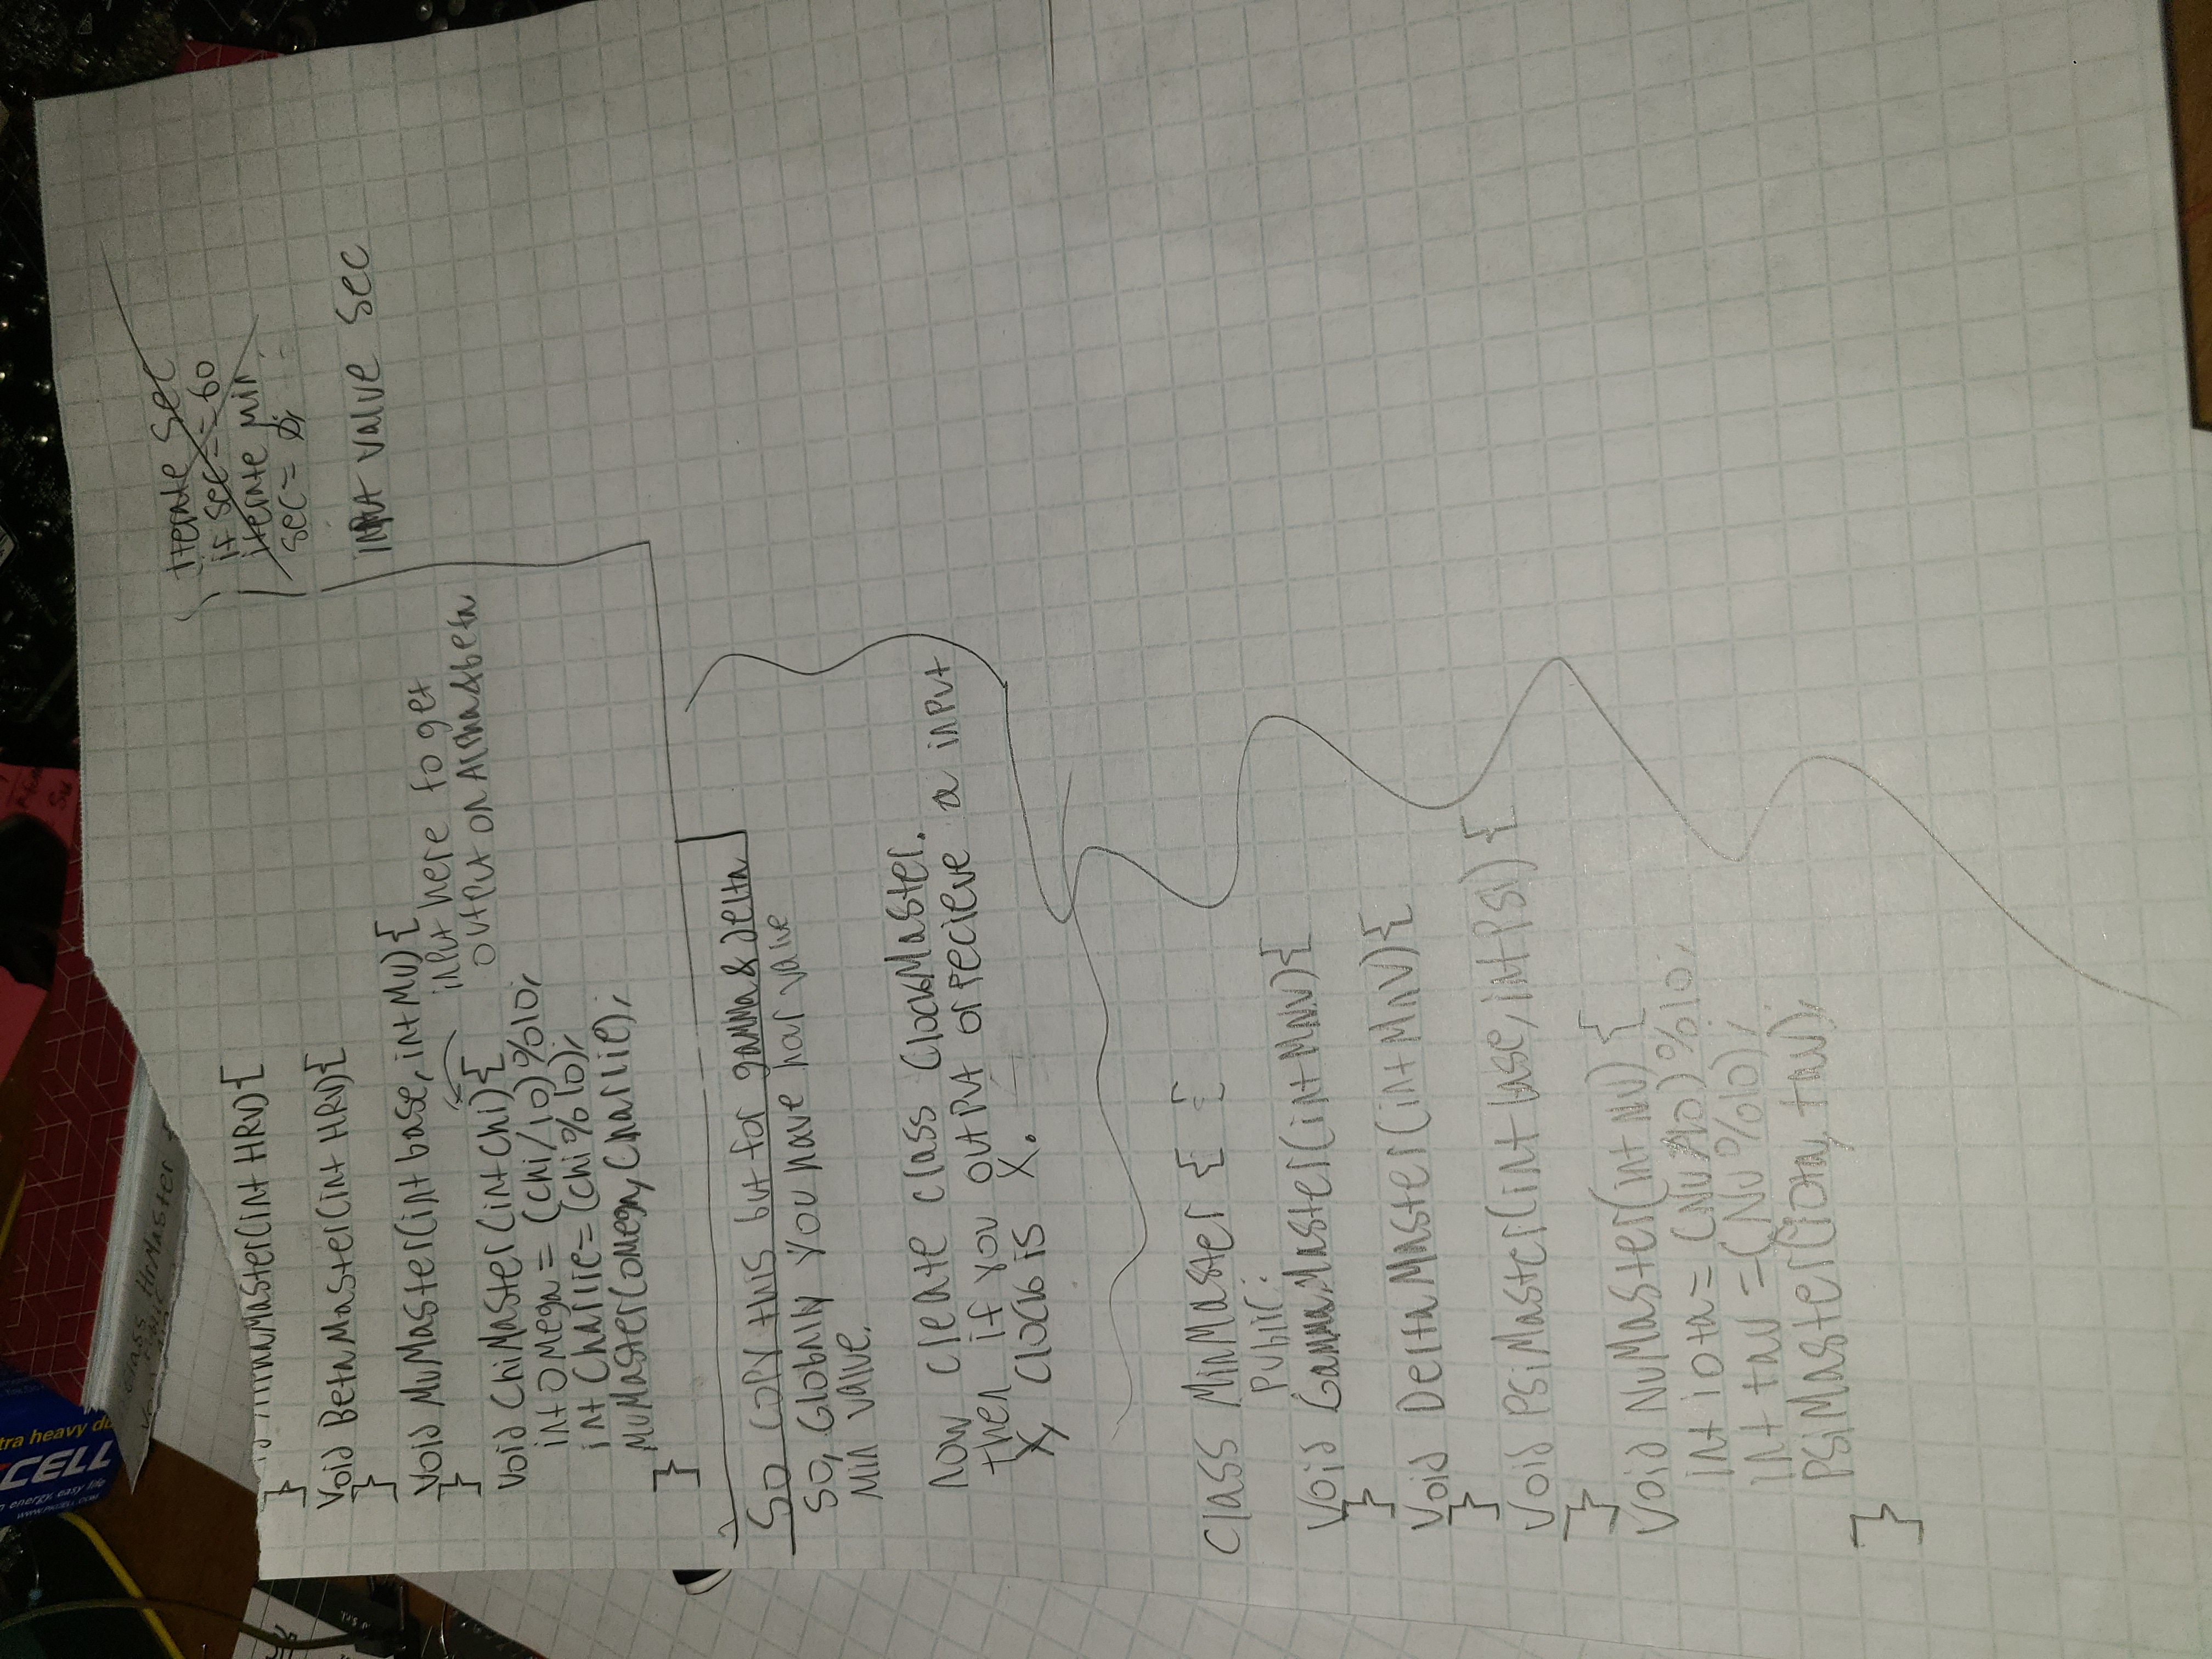 tra heavy du
CELL
class HrMaster {
AlphaMaster(int HRV){
}
Void BetaMaster(int HRV){
}
Void MuMaster(int base, int Mu){
}
input here to get
output on Alpha&beta
Void ChiMaster(int Chi){
int Omega = (Chi/10)%10;
int Charlie=(Chi%10);
MuMaster(Omega, Charlie);
}
iterate Sec
if sec==60
iterate Min
sec= 0;
input value Sec
So copy this but for gamma & delta
So, Globally you have hor value
Min value.
Now create class ClockMaster.
then if you output or recieve a input
X, Clock is X.
Class MinMaster { {
Public:
Void GammaMaster(int MNV){
}
Void DeltaMaster(int MnV){
}
Void PsiMaster(int base, int Psi){
}
Void NuMaster(int Nu) {
int iota= (Nu/10)%10;
int tau =(Nu%10);
PsiMaster(iota, tau);
}